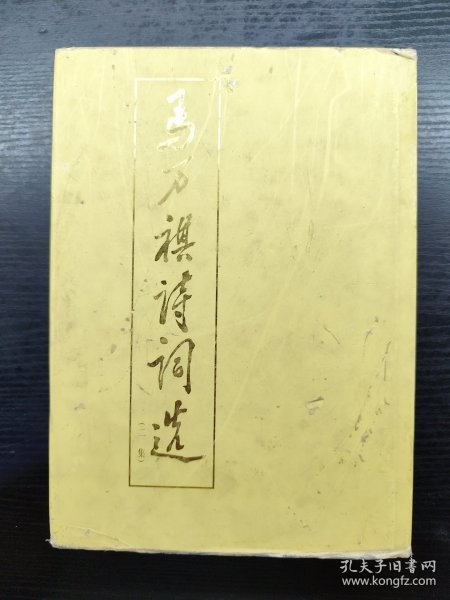 馬万祺詩詞选
（二集）
孔夫子旧书网
www.kongfz.com